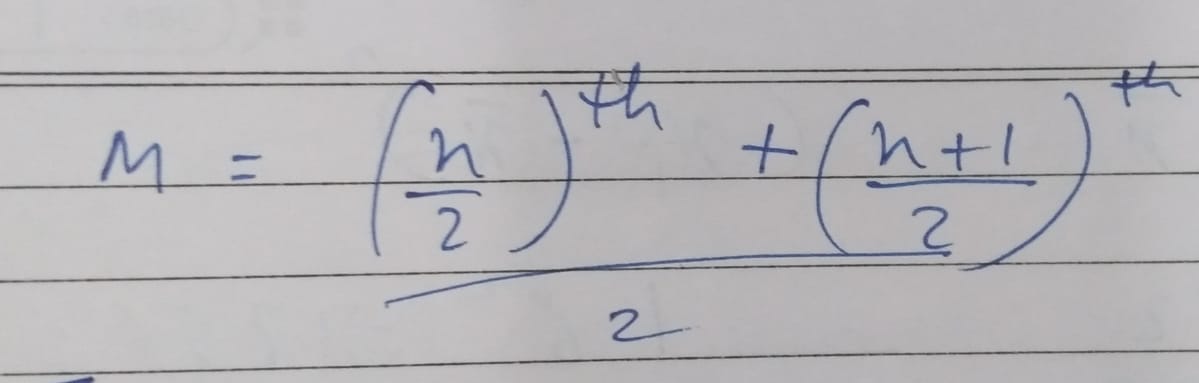 M = (n/2)^th + (n+1/2)^th / 2